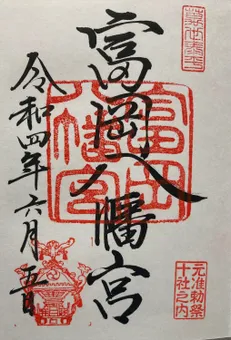 元准勅祭
十社之内
富岡八幡宮
富岡
八幡宮
令和四年六月五日